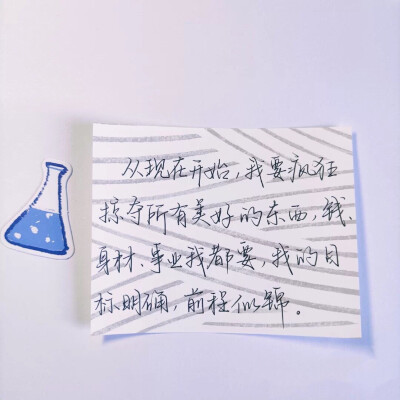 从现在开始,我要疯狂
掠夺所有美好的东西,钱、
身材、事业我都要,我的目
标明确,前程似锦。